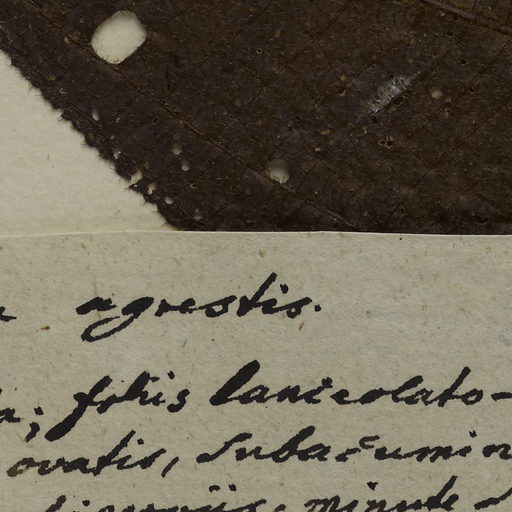 agrestis.
foliis lanceolato-
ovatis, subacumin
minute